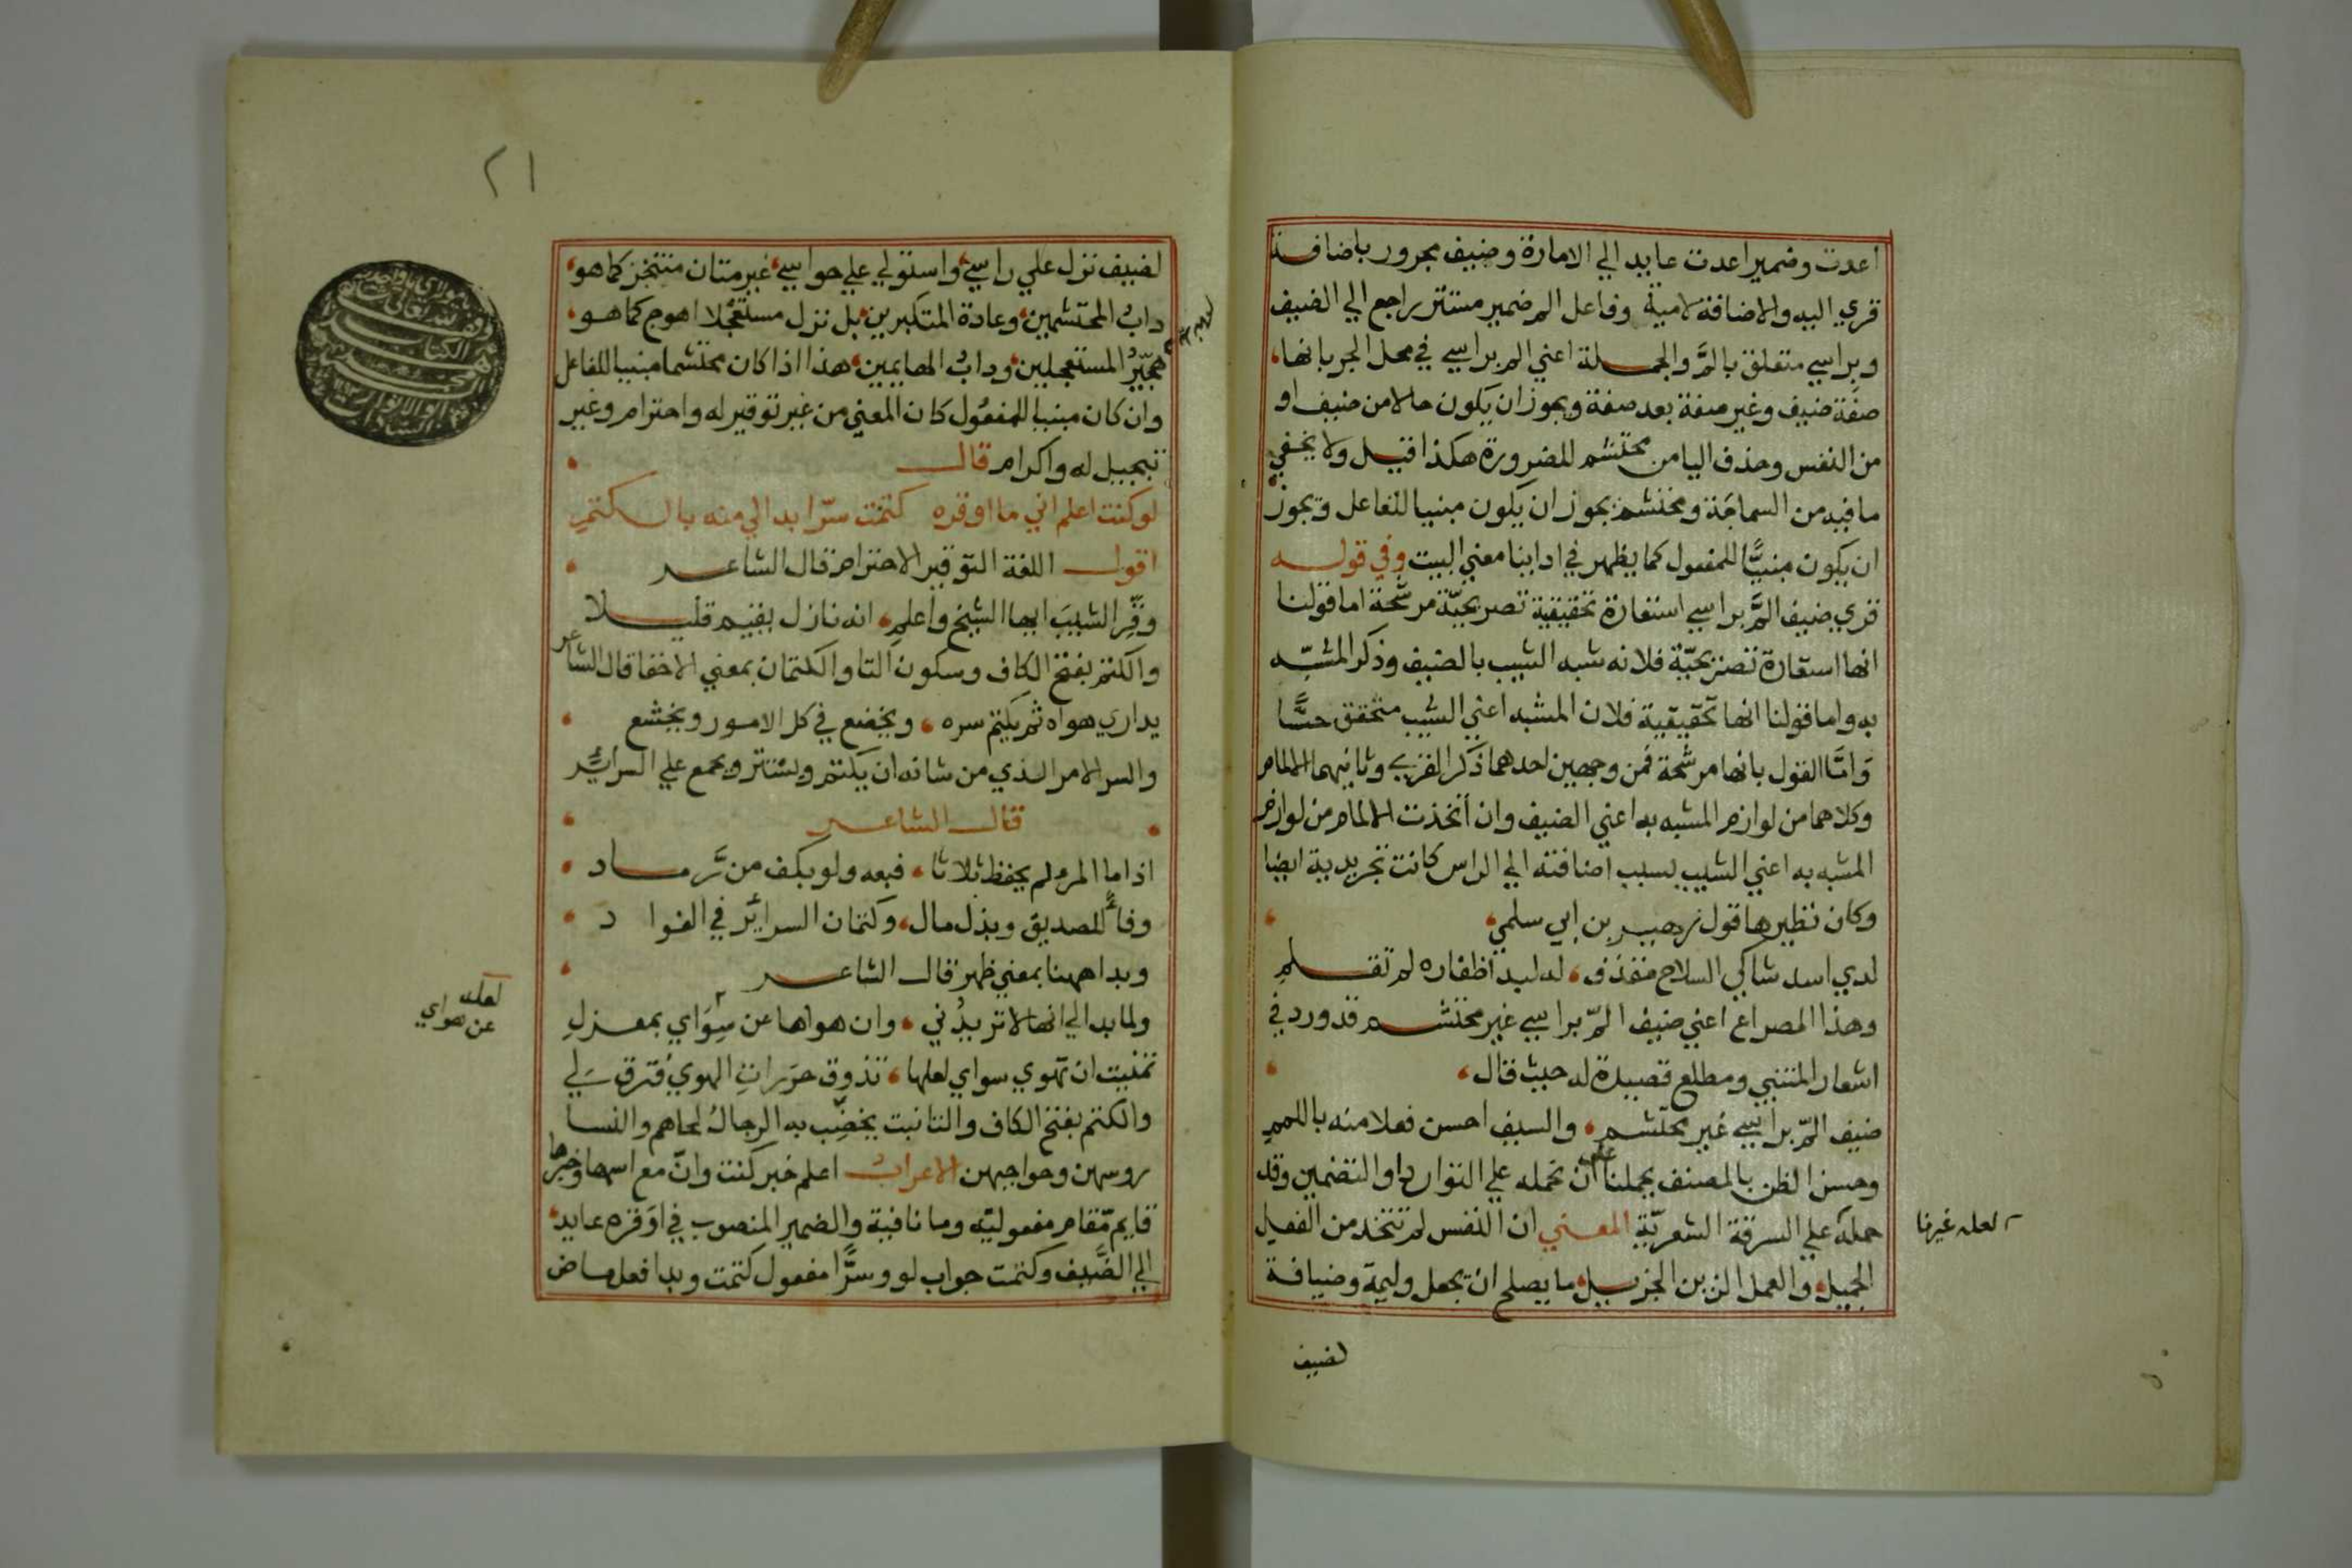 اعدت وضمير اعدت عايد الي الامارة وضيف مجرور باضافة
قري اليه والاضافة لامية وفاعل الم ضمير مستتر راجع الي الضيف
وبراسي متعلق بالمَّ والجملة اعني الم براسي في محل الجر بانها
صفة ضيف وغير صفة بعد صفة ويجوز ان يكون حالا من ضيف او
من النفس وحذف اليا من محتشم للضرورة هكذا قيل ولا يخفي
ما فيه من السماجة ومحتشم يجوز ان يكون مبنيا للفاعل ويجوز
ان يكون مبنيًّا للمفعول كما يظهر في ادائنا معني البيت وفي قوله
قري ضيف المَّ براسي استعارة تحقيقية تصريحيّة مرشّحة اما قولنا
انها استعارة تصريحيّة فلانه شبه الشيب بالضيف وذكر المشبّه
به واما قولنا انها تحقيقية فلان المشبه اعني الشيب متحقق حسًّا
وَامَّا القول بانها مرشحة فمن وجهين احدهما ذكر القري وثانيهما الالمام
وكلاهما من لوازم المشبه به اعني الضيف وان أتخذت الالمام من لوازم
المشبه به اعني الشيب بسبب اضافته الي الراس كانت تجريدية ايضا
وكان نظيرها قول زهير بن ابي سلمي
لدي اسد شاكي السلاح مقذف، له لبد اظفاره لم تقلم
وهذا المصراع اعني ضيف المّ براسي غير محتشم قد ورد في
اشعار المتنبي ومطلع قصيدة له حيث قال
ضيف المّ براسي غير محتشم، والسيف احسن فعلا منه باللمم
وحسن الظن بالمصنف يحملنا علي ان نحمله علي التوارد او التضمين وقد
حمله علي السرقة الشعريّة المعني ان النفس لم تتخد من الفعل
الجميل، والعمل الزين الجزيل، ما يصلح ان يجعل وليمة وضيافة
لعله غيرنا
لضيف
٢١
لضيف نزل علي راسي، واستولي علي حواسي، غير متان منتجز كما هو
دابُ المحتشمين، وعادة المتكبرين، بل نزل مستعجلا اهوج كما هو
هجّيرُ المستعجلين، وداب الهايمين، هذا اذا كان محتشما مبنيا للفاعل
وان كان مبنيا للمفعُول كان المعني من غير توقير له واحترام وغير
تبجيل له واكرام قال
لو كنت اعلم اني ما اوقره كتمت سرّا بدا لي منه بالكتم
اقول اللغة التوقير الاحترام قال الشاعر
وقّرِ الشيبَ ايها الشيخ واعلم، انه نازل يقيم قليلا
والكتم بفتح الكاف وسكون التا والكتمان بمعني الاخفا قال الشاعر
يداري هواه ثم يكتم سره، ويخضع في كل الامور ويخشع
والسر الامر الذي من شانه ان يكتم ويستتر ويجمع علي السرائر
قال الشاعر
اذا ما المرء لم يحفظ ثلاثا، فبعه ولو بكف من رَّماد
وفاءً للصديق وبذل مال، وكتمان السرائر في الفواد
وبدا ههنا بمعني ظهر قال الشاعر
ولما بدا لي انها لا تريدُني، وان هواها عن سِوَاي بمعزلِ
تمنيت ان تهوي سواي لعلها، تذوق حرَراتِ الهوي فترق لي
والكتم بفتح الكاف والتا نبت يخضّب به الرجالُ لحاهم والنسا
روسهن وحواجبهن الاعراب اعلم خبر كنت وانّ مع اسمها وخبرها
قايم مّقام مفعوليّه وما نافية والضمير المنصوب في اوَقره عايد
الي الضَّيف وكتمت جواب لو وسرًّا مفعول كتمت وبدا فعل ماض
لعله
عن هواي